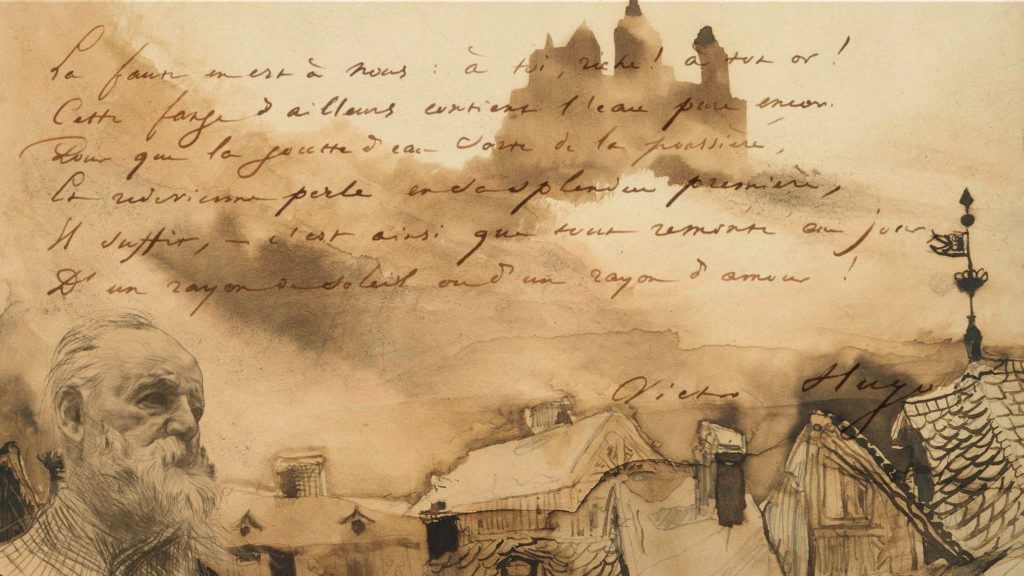 La faute en est à nous : à toi, riche ! à ton or !
Cette fange d'ailleurs contient l'eau pure encor.
Pour que la goutte d'eau sorte de la poussière,
Et redevienne perle en sa splendeur première,
Il suffit, – c'est ainsi que tout remonte au jour,
D'un rayon de soleil ou d'un rayon d'amour !
Victor Hugo